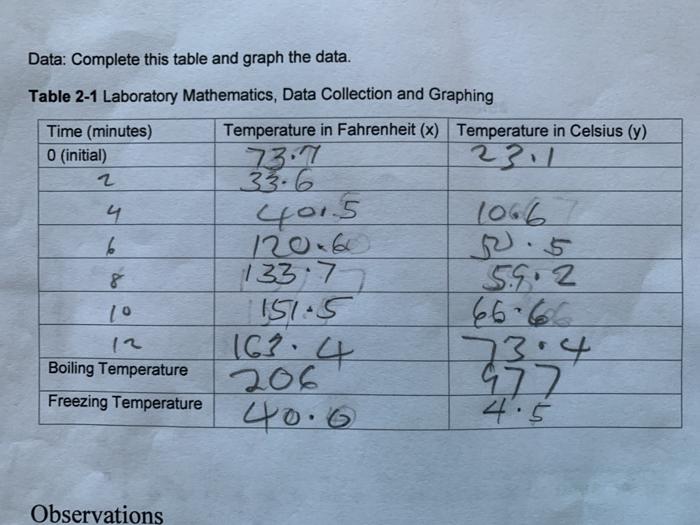 Data: Complete this table and graph the data.
Table 2-1 Laboratory Mathematics, Data Collection and Graphing
Time (minutes) Temperature in Fahrenheit (x) Temperature in Celsius (y)
0 (initial) 73.7 23.1
2 33.6
4 401.5 10.6
6 120.6 50.5
8 133.7 59.2
10 151.5 66.6
12 163.4 73.4
Boiling Temperature 206 977
Freezing Temperature 40.0 4.5
Observations